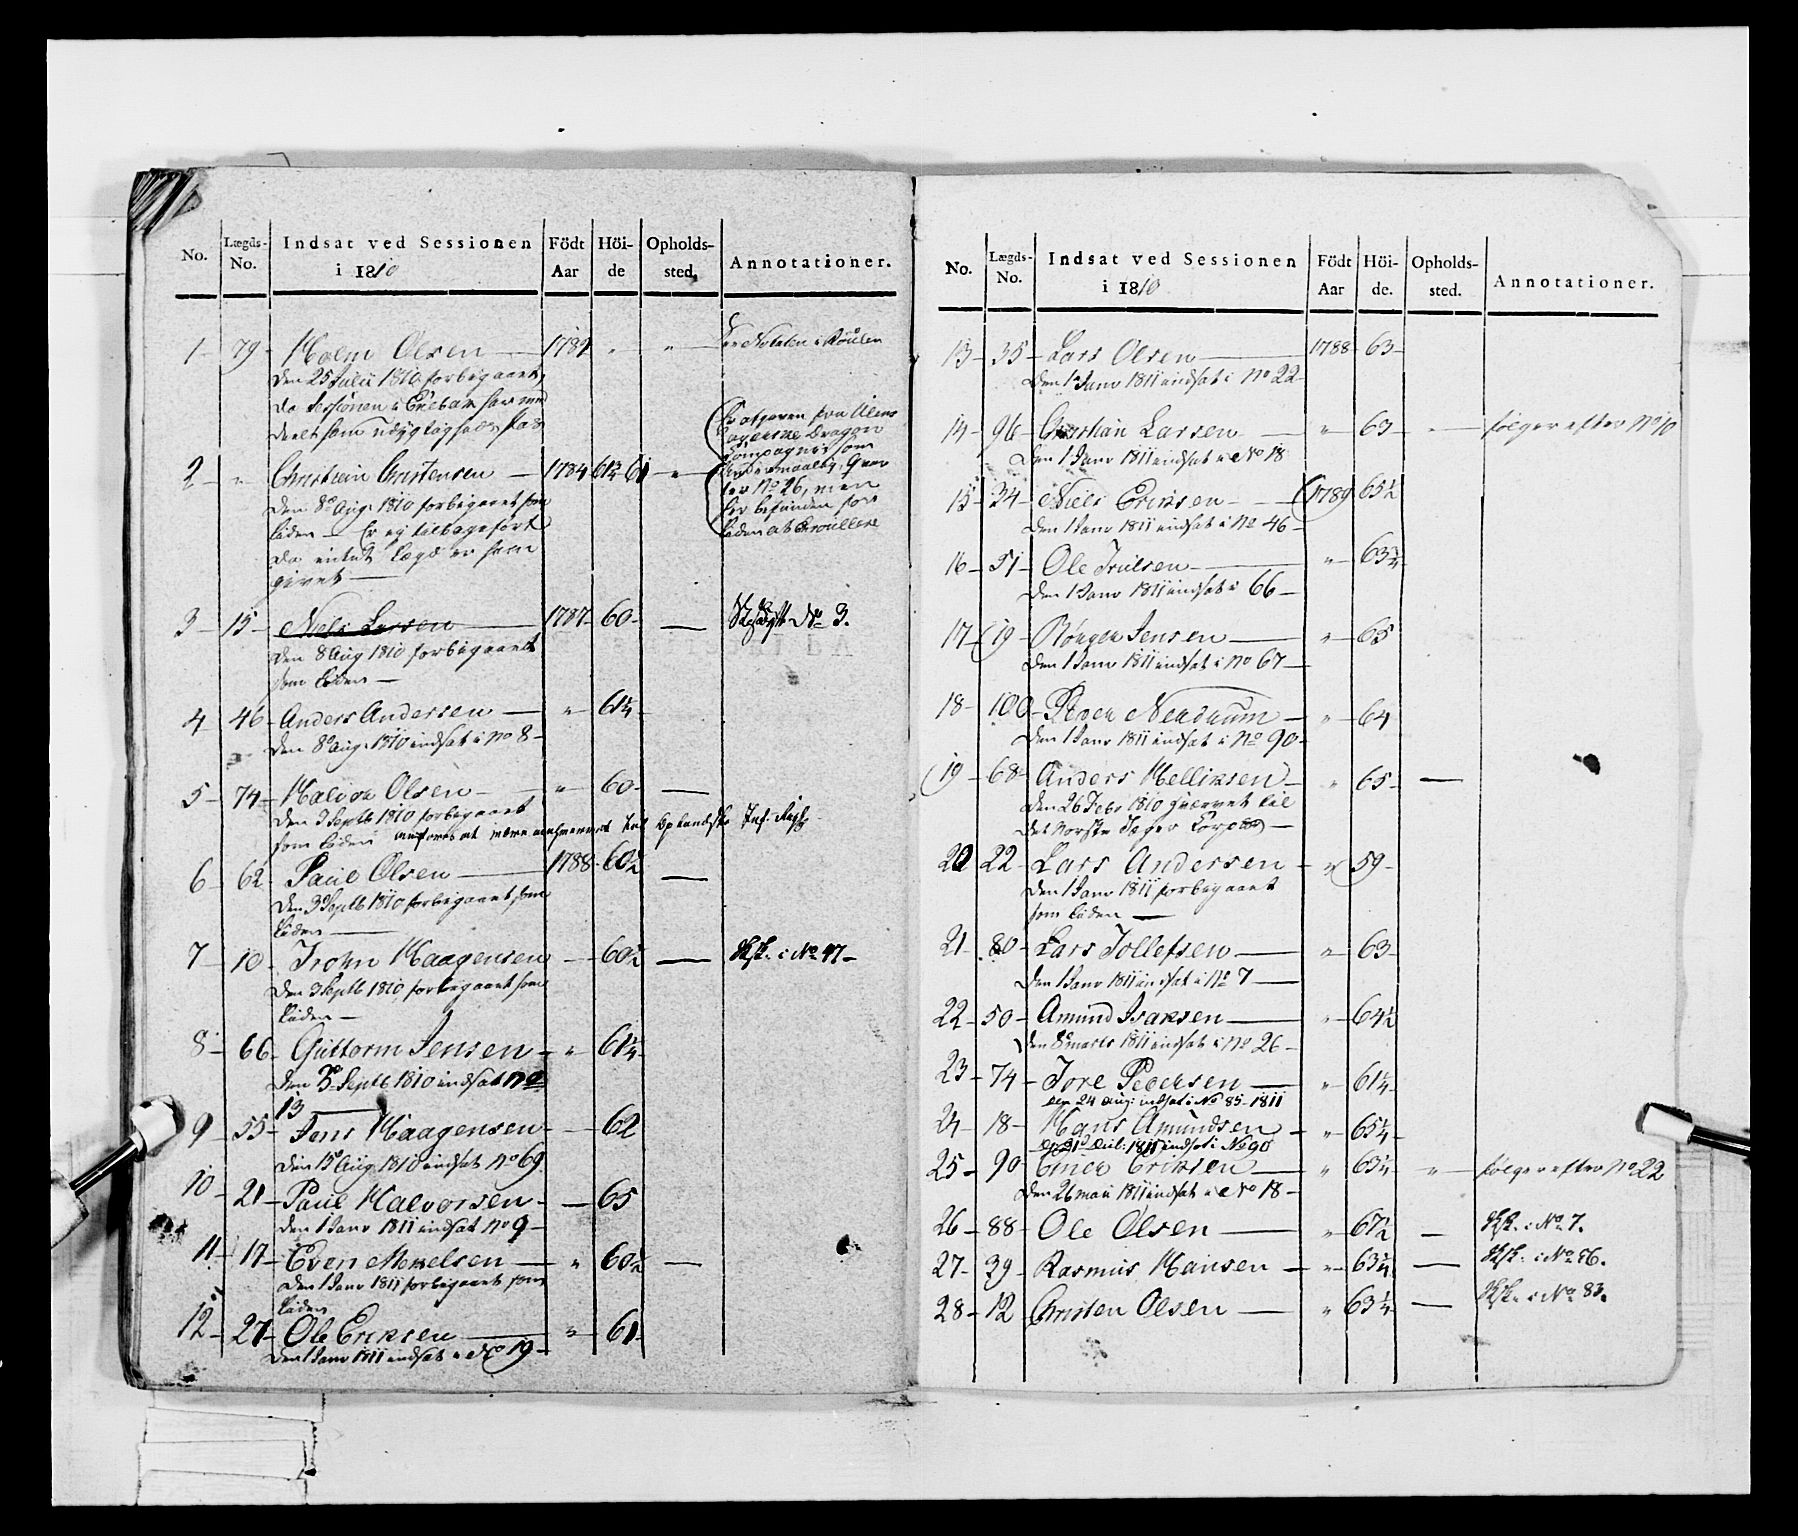 No. Lægds-No. Indsat ved Sessionen i 1810 Födt Aar Höi-de Opholds-sted. Annotationer.
1 79 Holm Olsen 1789 " "
Den 25 Julii 1810 forbigaaet,
da Sessionen i
2 " Christian Christensen 1784 61¾ 61 "
Den 8de Aug: 1810 forbigaaet som
liden Er ej tilbageført
da intet Lægd er
givet
Compagnie som
No 26, men
er befunden for
liden at
3 15 Niels Larsen 1787 60 No 3.
den 8 Aug 1810 forbigaaet
som liden
4 46 Anders Andersen " 61¼
den 8de Aug: 1810 indsat i No 8
5 74 Halvor Olsen " 60
den 3 Septb 1810 forbigaaet
som liden anføres at være Oplandske Inf. Regt
6 62 Paul Olsen 1788 60½
Den 3 Septb 1810 forbigaaet som
liden
7 10 Trohn Haagensen 60½ i No 47
den 3 Septb 1810 forbigaaet som
liden
8 66 Guttorm Jensen " 61¼
den 3de Septb 1810 indsat No
13
9 55 Jens Haagensen 62
den 15de Aug 1810 indsat No 69
10 21 Paul Halvorsen 65
den 1 Janv 1811 indsat No 9
11 17 Even " 60½
den 1 Janv 1811 forbigaaet som
liden
12 27 Ole Eriksen " 61
den 1 Janv 1811 indsat i No 19
No. Lægds-No. Indsat ved Sessionen i 1810 Födt Aar Höi-de. Opholds-sted. Annotationer.
13 35 Lars Olsen 1788 63
Den 1 Janv 1811 indsat i No 22
14 96 Christian Larsen " 63 " følger efter No 10
Den 1 Janv 1811 indsat i No 18
15 34 Niels Eriksen 1789 65½
Den 1 Janv 1811 indsat i No 46
16 51 Ole Trulsen " 63¾
den 1 Janv 1811 indsat i 66
17 19 Jensen " 65
den 1 Janv 1811 indsat i No 67
18 100 Peder Nerdrum " 64
Den 1 Janv 1811 indsat i No 90
19 68 Anders Helliksen " 65
den 26 Febr 1810 hvervet til
det Norske Jæger Corps
20 22 Lars Andersen " 59
den 1 Janv 1811 forbigaaet
som liden
21 80 Lars Tollefsen " 63
den 1 Janv 1811 indsat i No 7
22 50 Amund Isaksen " 64½
den 8 Marts 1811 indsat i No 26
23 74 Tore Pedersen " 61¼
den 24 Aug: indsat i No 85 1811
24 18 Hans Amundsen " 65¼
1811 indsat i No 90
25 90 Einer Eriksen " 63¼ " følger efter No 22
Den 26 Mai 1811 indsat i No 18
26 88 Ole Olsen " 67½ i No 7.
27 39 Rasmus Hansen " 63¼ i No 56.
28 12 Christen Olsen " 63¼ i No 83.